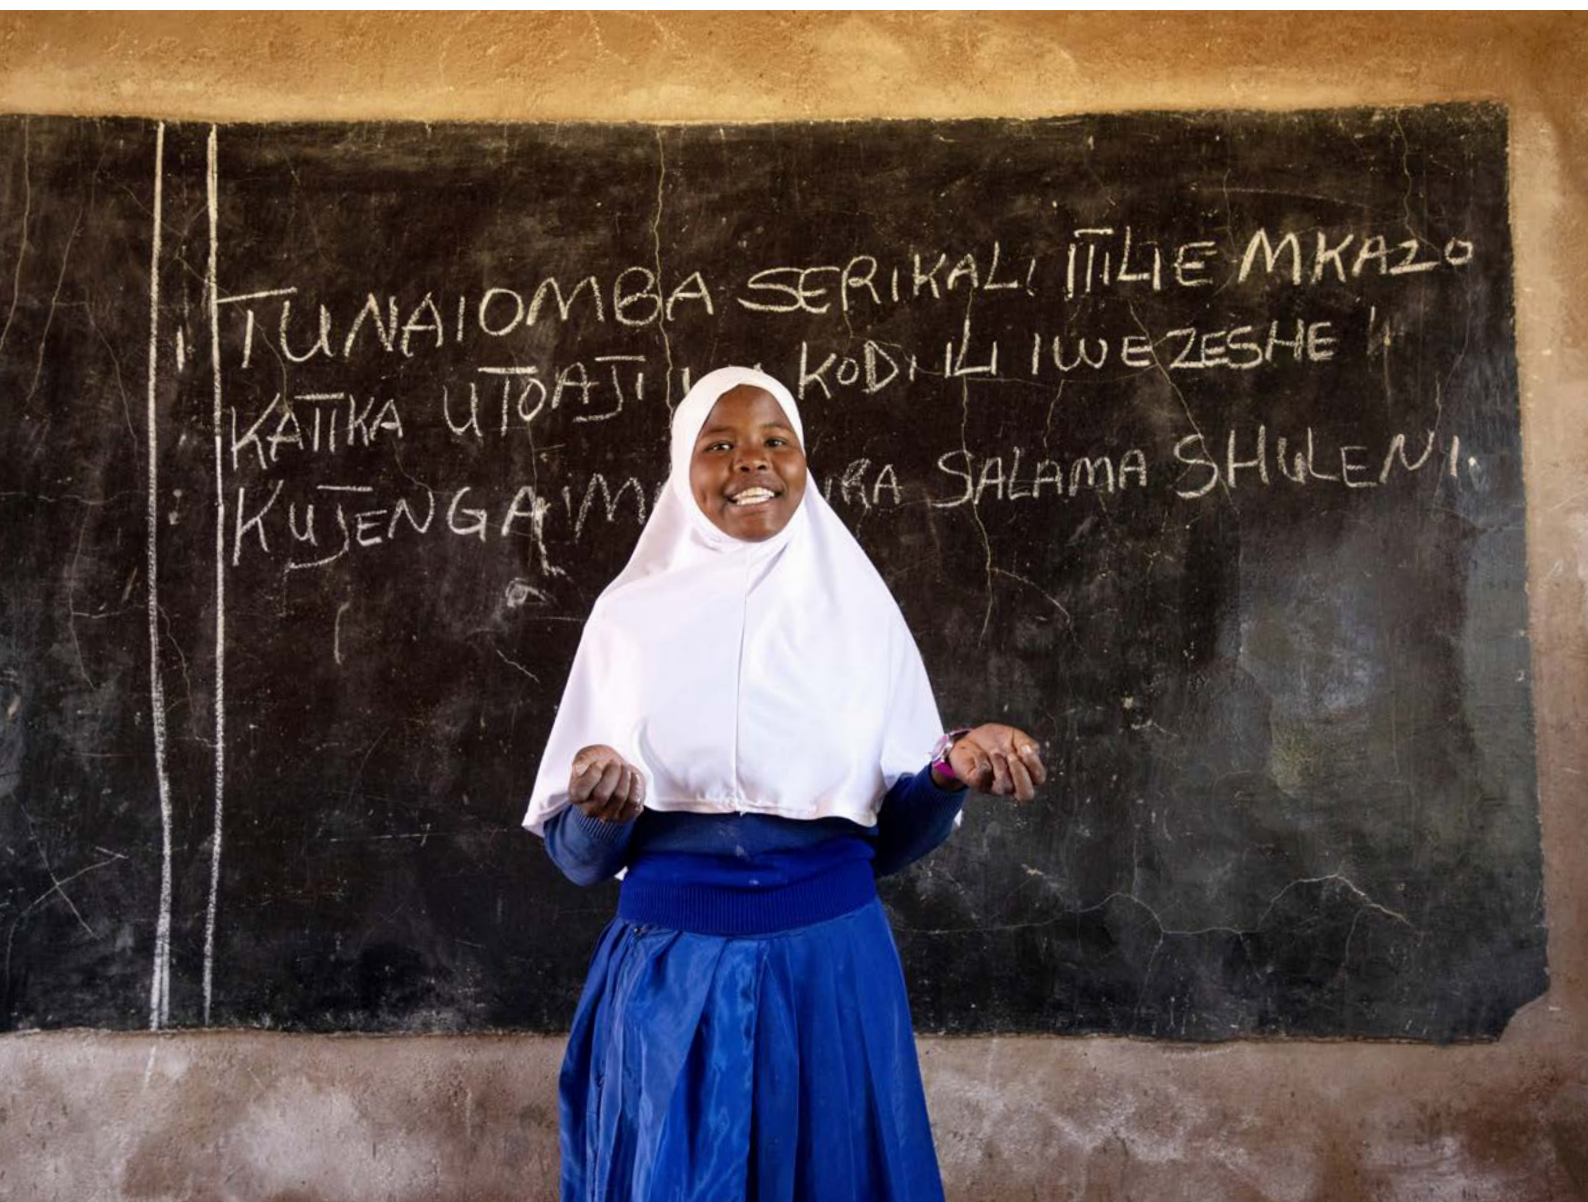 TUNAIOMBA SERIKALI ITILIE MKAZO
KATIKA UTOAJI KODI ILI IWEZESHE
KUJENGA SALAMA SHULENI.